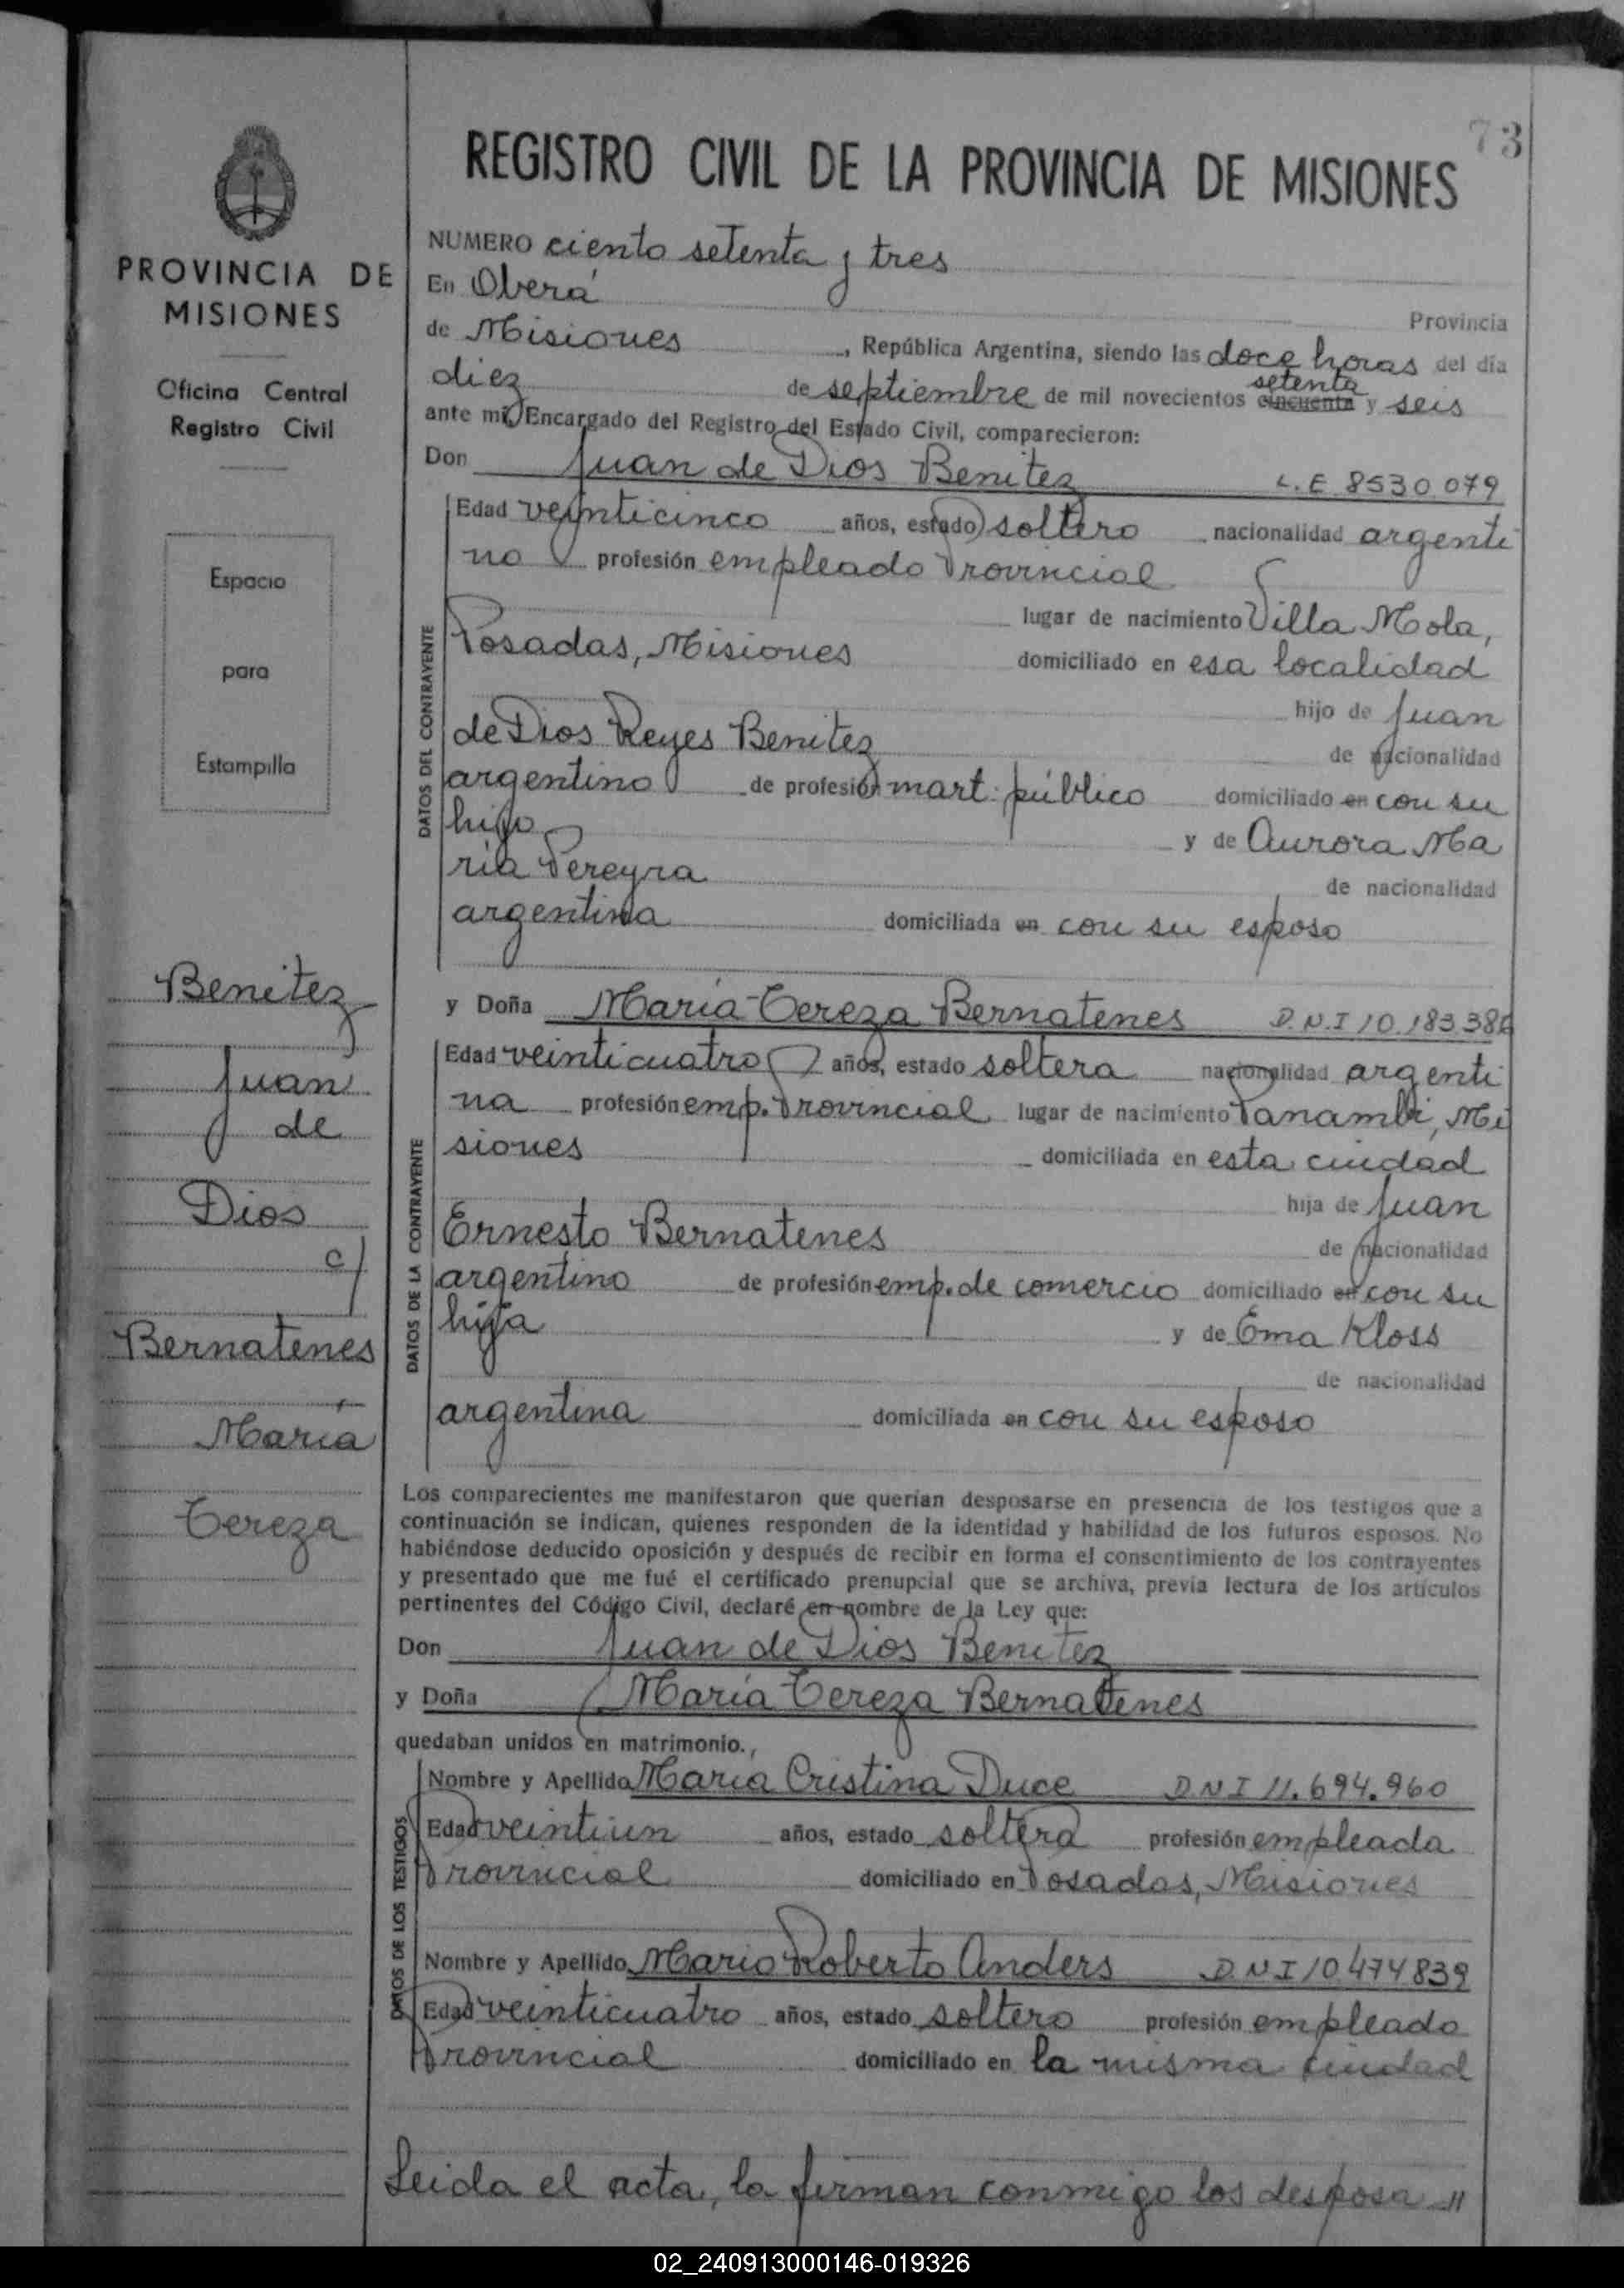 73
REGISTRO CIVIL DE LA PROVINCIA DE MISIONES
PROVINCIA DE
MISIONES
Oficina Central
Registro Civil
Espacio
para
Estampilla
Benitez
Juan
de
Dios
c/
Bernatenes
María
Tereza
NUMERO ciento setenta y tres
En Oberá
Provincia
de Misiones, República Argentina, siendo las doce horas del día
diez de septiembre de mil novecientos cincuenta setenta y seis
ante mí, Encargado del Registro del Estado Civil, comparecieron:
Don Juan de Dios Benitez L.E 8530.079
DATOS DEL CONTRAYENTE
Edad veinticinco años, estado soltero nacionalidad argenti
no profesión empleado Provincial
lugar de nacimiento Villa Mola,
Posadas, Misiones domiciliado en esa localidad
hijo de Juan
de Dios Reyes Benitez de nacionalidad
argentino de profesión mart. público domiciliado en con su
hijo y de Aurora Ma
ría Pereyra de nacionalidad
argentina domiciliada en con su esposo
y Doña María Tereza Bernatenes D.N.I 10.183.38
DATOS DE LA CONTRAYENTE
Edad veinticuatro años, estado soltera nacionalidad argenti
na profesión emp. Provincial lugar de nacimiento Panambí, Mi
siones domiciliada en esta ciudad
hija de Juan
Ernesto Bernatenes de nacionalidad
argentino de profesión emp. de comercio domiciliado en con su
hija y de Ema Kloss
de nacionalidad
argentina domiciliada en con su esposo
Los comparecientes me manifestaron que querían desposarse en presencia de los testigos que a
continuación se indican, quienes responden de la identidad y habilidad de los futuros esposos. No
habiéndose deducido oposición y después de recibir en forma el consentimiento de los contrayentes
y presentado que me fué el certificado prenupcial que se archiva, previa lectura de los artículos
pertinentes del Código Civil, declaré en nombre de la Ley que:
Don Juan de Dios Benitez
y Doña María Tereza Bernatenes
quedaban unidos en matrimonio.,
DATOS DE LOS TESTIGOS
Nombre y Apellido María Cristina Duce D.N.I 11.694.960
Edad veintiun años, estado soltera profesión empleada
Provincial domiciliado en Posadas, Misiones
Nombre y Apellido Mario Roberto Anders D.N.I 10.474839
Edad veinticuatro años, estado soltero profesión empleado
Provincial domiciliado en la misma ciudad
Leida el acta, la firman conmigo los desposa -//
02_240913000146-019326